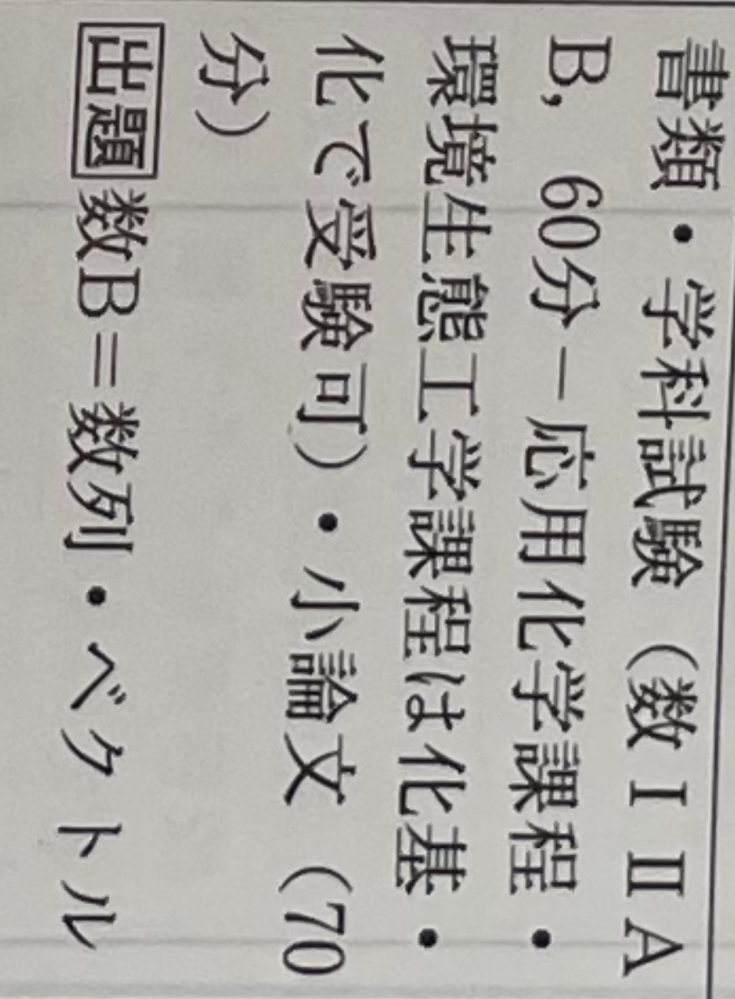 書類・学科試験（数ⅠⅡA
B, 60分－応用化学課程・
環境生態工学課程は化基・
化で受験可）・小論文（70
分）
出題数B＝数列・ベクトル